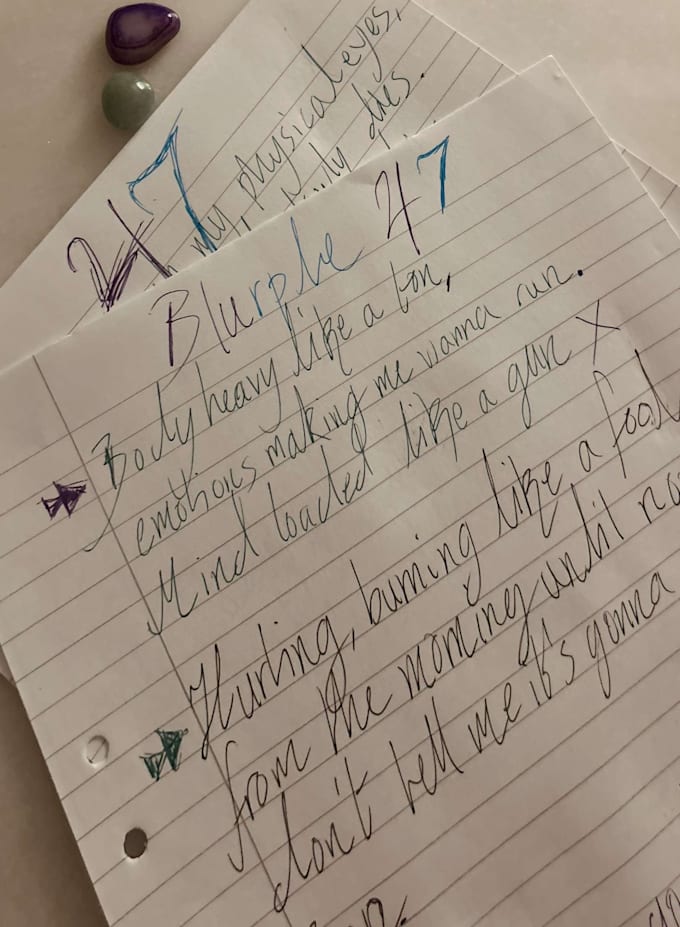 47
my physical eyes,
dies.
Blurple 47
Body heavy like a ton,
emotions making me wanna run.
Mind loaded like a gun X
Hurting, burning like a food
from the morning until no
don't tell me it's gonna